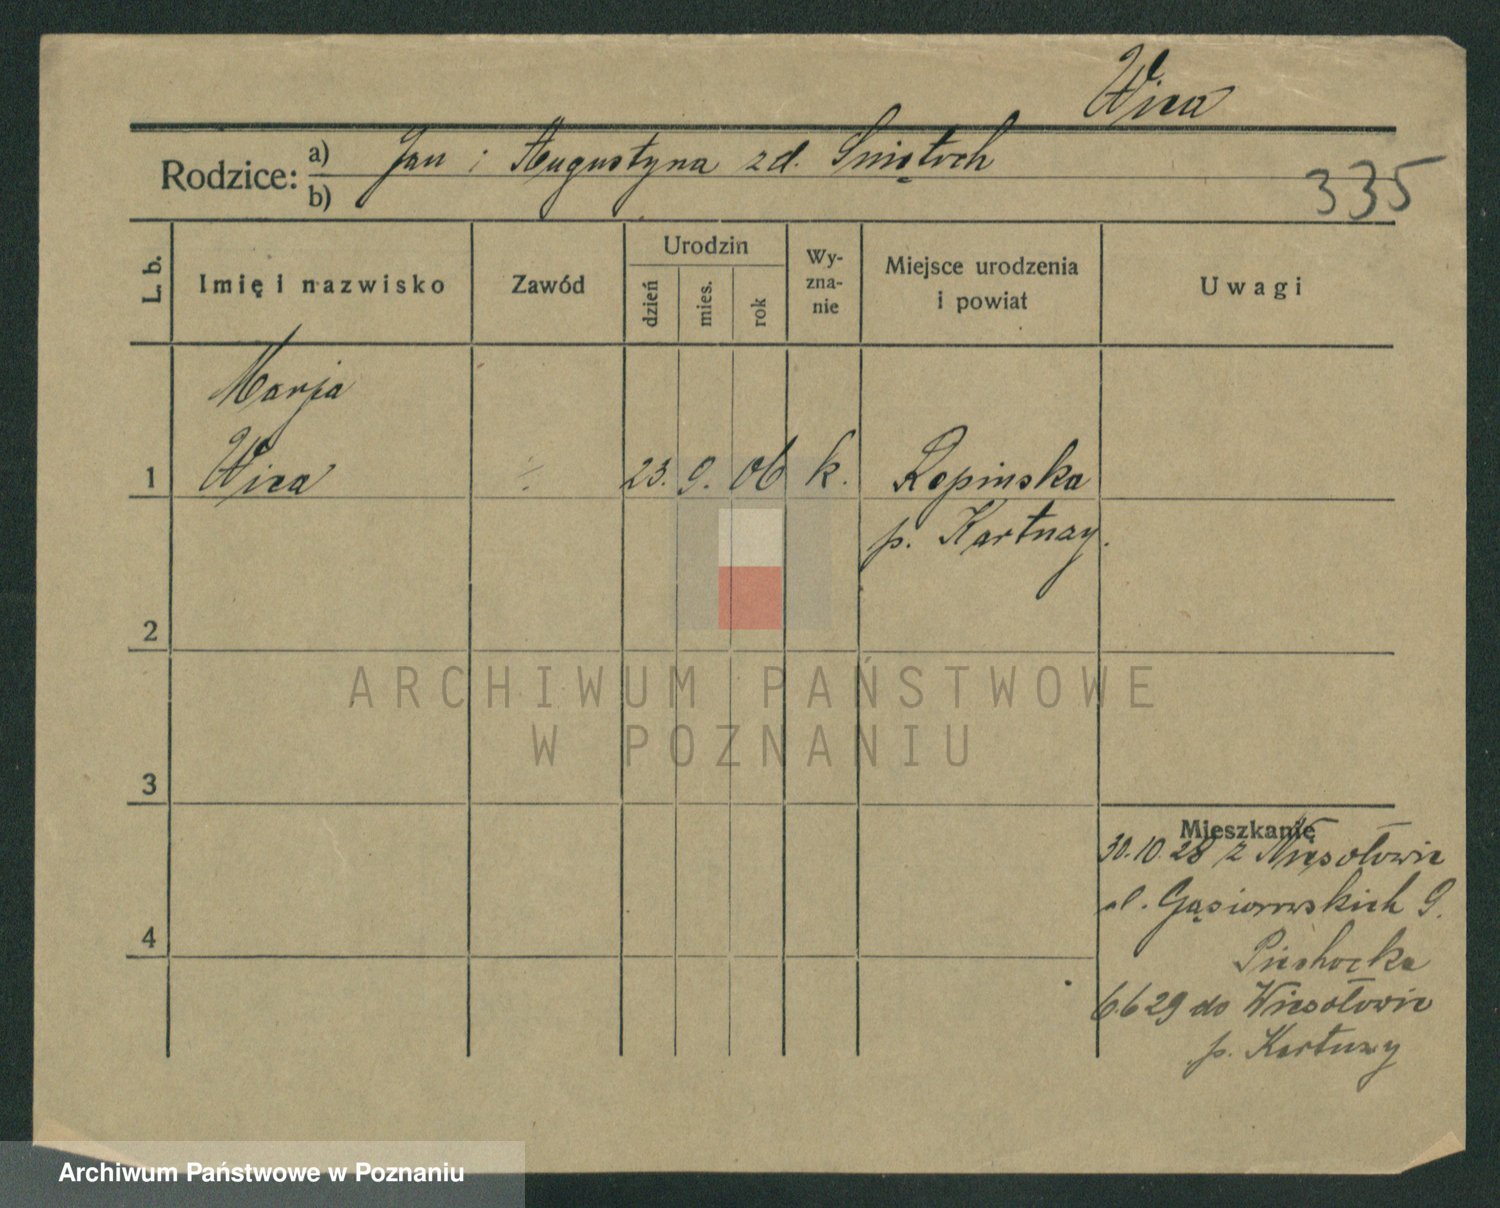 Wica
Rodzice: a) Jan i Augustyna zd.
b)
335
L. b.
Imię i nazwisko
Zawód
Urodzin
dzień
mies.
rok
Wy-
zna-
nie
Miejsce urodzenia
i powiat
Uwagi
Marja
1 Wica 23. 9. 06 k. Repinska
p. Kartuzy.
2
ARCHIWUM PAŃSTWOWE
W POZNANIU
3
Mieszkanie
30.10.28 z
ul. Gąsiorowskich 9.
4
Piechocka
6.6 29 do
p. Kartuzy
Archiwum Państwowe w Poznaniu